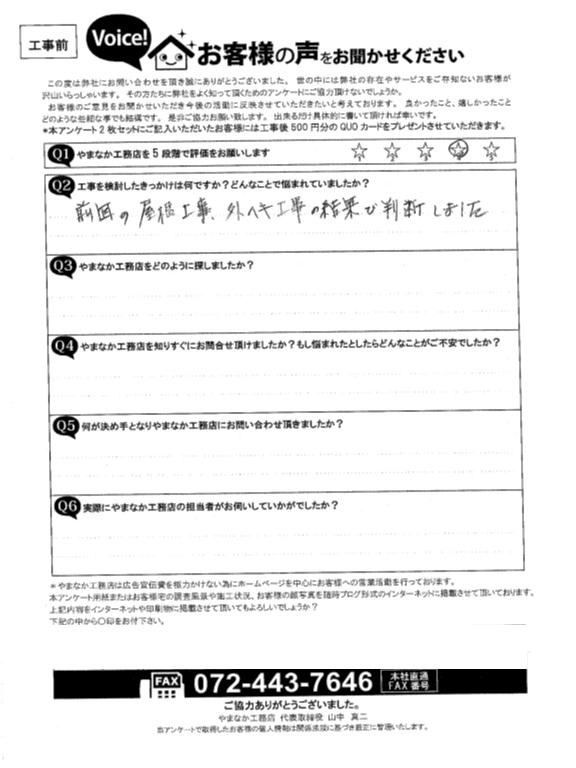 工事前
Voice!
お客様の声をお聞かせください
この度は弊社にお問い合わせを頂き誠にありがとうございました。 世の中には弊社の存在やサービスをご存知ないお客様が
沢山いらっしゃいます。 その方たちに弊社をよく知って頂くためのアンケートにご協力頂けないでしょうか。
お客様のご意見をお聞かせいただき今後の活動に反映させていただきたいと考えております。 良かったこと、嬉しかったこと
どのような些細な事でも結構です。 是非ご協力お願い致します。 出来るだけ具体的に書いて頂ければ幸いです。
*本アンケート2枚セットにご記入いただいたお客様には工事後500円分のQUOカードをプレゼントさせていただきます。
Q1 やまなか工務店を5段階で評価をお願いします
1 2 3 4 5
Q2 工事を検討したきっかけは何ですか?どんなことで悩まれていましたか?
前回の屋根工事、外ヘキ工事の結果で判断しました
Q3 やまなか工務店をどのように探しましたか?
Q4 やまなか工務店を知りすぐにお問合せ頂けましたか?もし悩まれたとしたらどんなことがご不安でしたか?
Q5 何が決め手となりやまなか工務店にお問い合わせ頂きましたか?
Q6 実際にやまなか工務店の担当者がお伺いしていかがでしたか?
*やまなか工務店は広告宣伝費を極力かけない為にホームページを中心にお客様への営業活動を行っております。
本アンケート用紙またはお客様宅の調査風景や施工状況、お客様の顔写真を随時ブログ形式のインターネットに掲載させて頂いております。
上記内容をインターネットや印刷物に掲載させて頂いてもよろしいでしょうか?
下記の中から〇印をお付下さい。
FAX 072-443-7646 本社直通
FAX番号
ご協力ありがとうございました。
やまなか工務店 代表取締役 山中 真二
当アンケートで取得したお客様の個人情報は関係法規に基づき厳正に管理いたします。